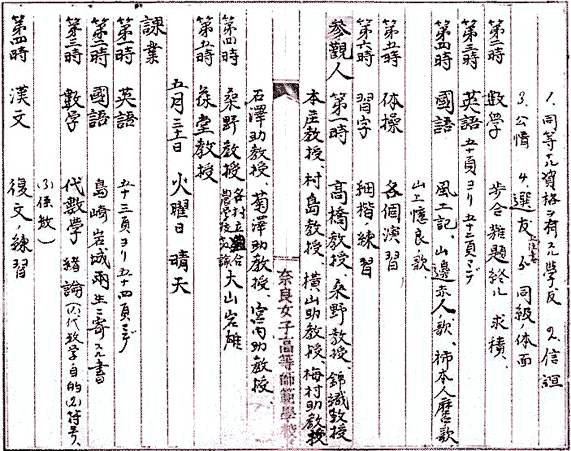 1. 同等ナル資格ヲ有スル学友 2. 信誼
3. 公情 4. 選友 5. 同級ノ体面
第二時 数学 歩合雑題終ル 求積、
第三時 英語 五十頁ヨリ五十三頁マデ
第四時 國語 風土記、山邊赤人ノ歌、柿本人麿ノ歌
山上憶良ノ歌、
第五時 体操 各個演習
第六時 習字 細楷ノ練習
参観人 第一時 高橋教授、桑野教授、錦織教授
本庄教授、村島教授、横山助教授、梅村助教授
奈良女子高等師範學校
石澤助教授、菊澤助教授、宮内助教授
第四時 桑野教授 大山岩雄
第五時 葆堂教授
五月三十一日 火曜日 晴天
課業
第一時 英語 五十三頁ヨリ五十四頁マデ
第二時 國語 島崎岩城両生ニ寄スル書
第三時 数学 代数学 緒論 (1)代数学ノ目的 (2)符号、
(3)係数)
第四時 漢文 復文ノ練習